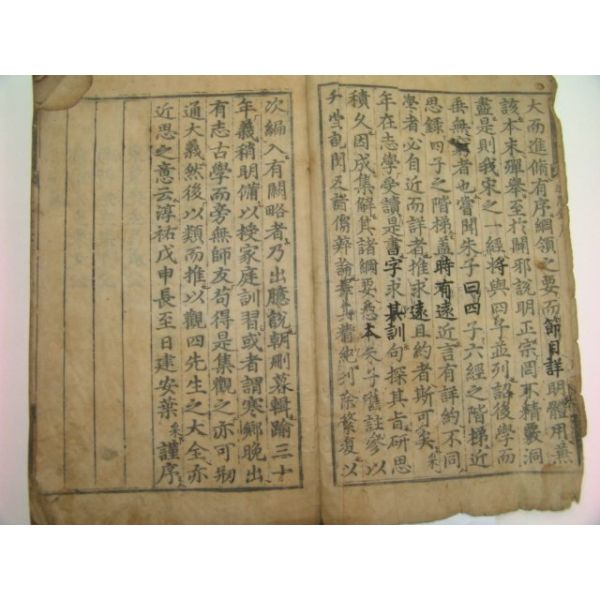 大而進脩有序綱領之要而節目詳明體用兼
該本末殫舉至於闢邪說明正宗罔不精覈洞
盡是則我宋之一經將與四子並列詔後學而
垂無窮者也嘗聞朱子曰四子六經之階梯近
思錄四子之階梯蓋時有遠近言有詳約不同
學者必自近而詳者推求遠且約者斯可矣采
年在志學受讀是書字求其訓句探其旨研思
積久因成集解其諸綱要悉本朱子舊註參以
升堂記聞及諸儒辯論擇其精純刊除繁複以
次編入有闕略者乃出臆說朝刪暮輯踰三十
年義稍明備以授家庭訓習或者謂寒鄉晚出
有志古學而旁無師友苟得是集觀之亦可刱
通大義然後以類而推以觀四先生之大全亦
近思之意云淳祐戊申長至日建安葉采謹序